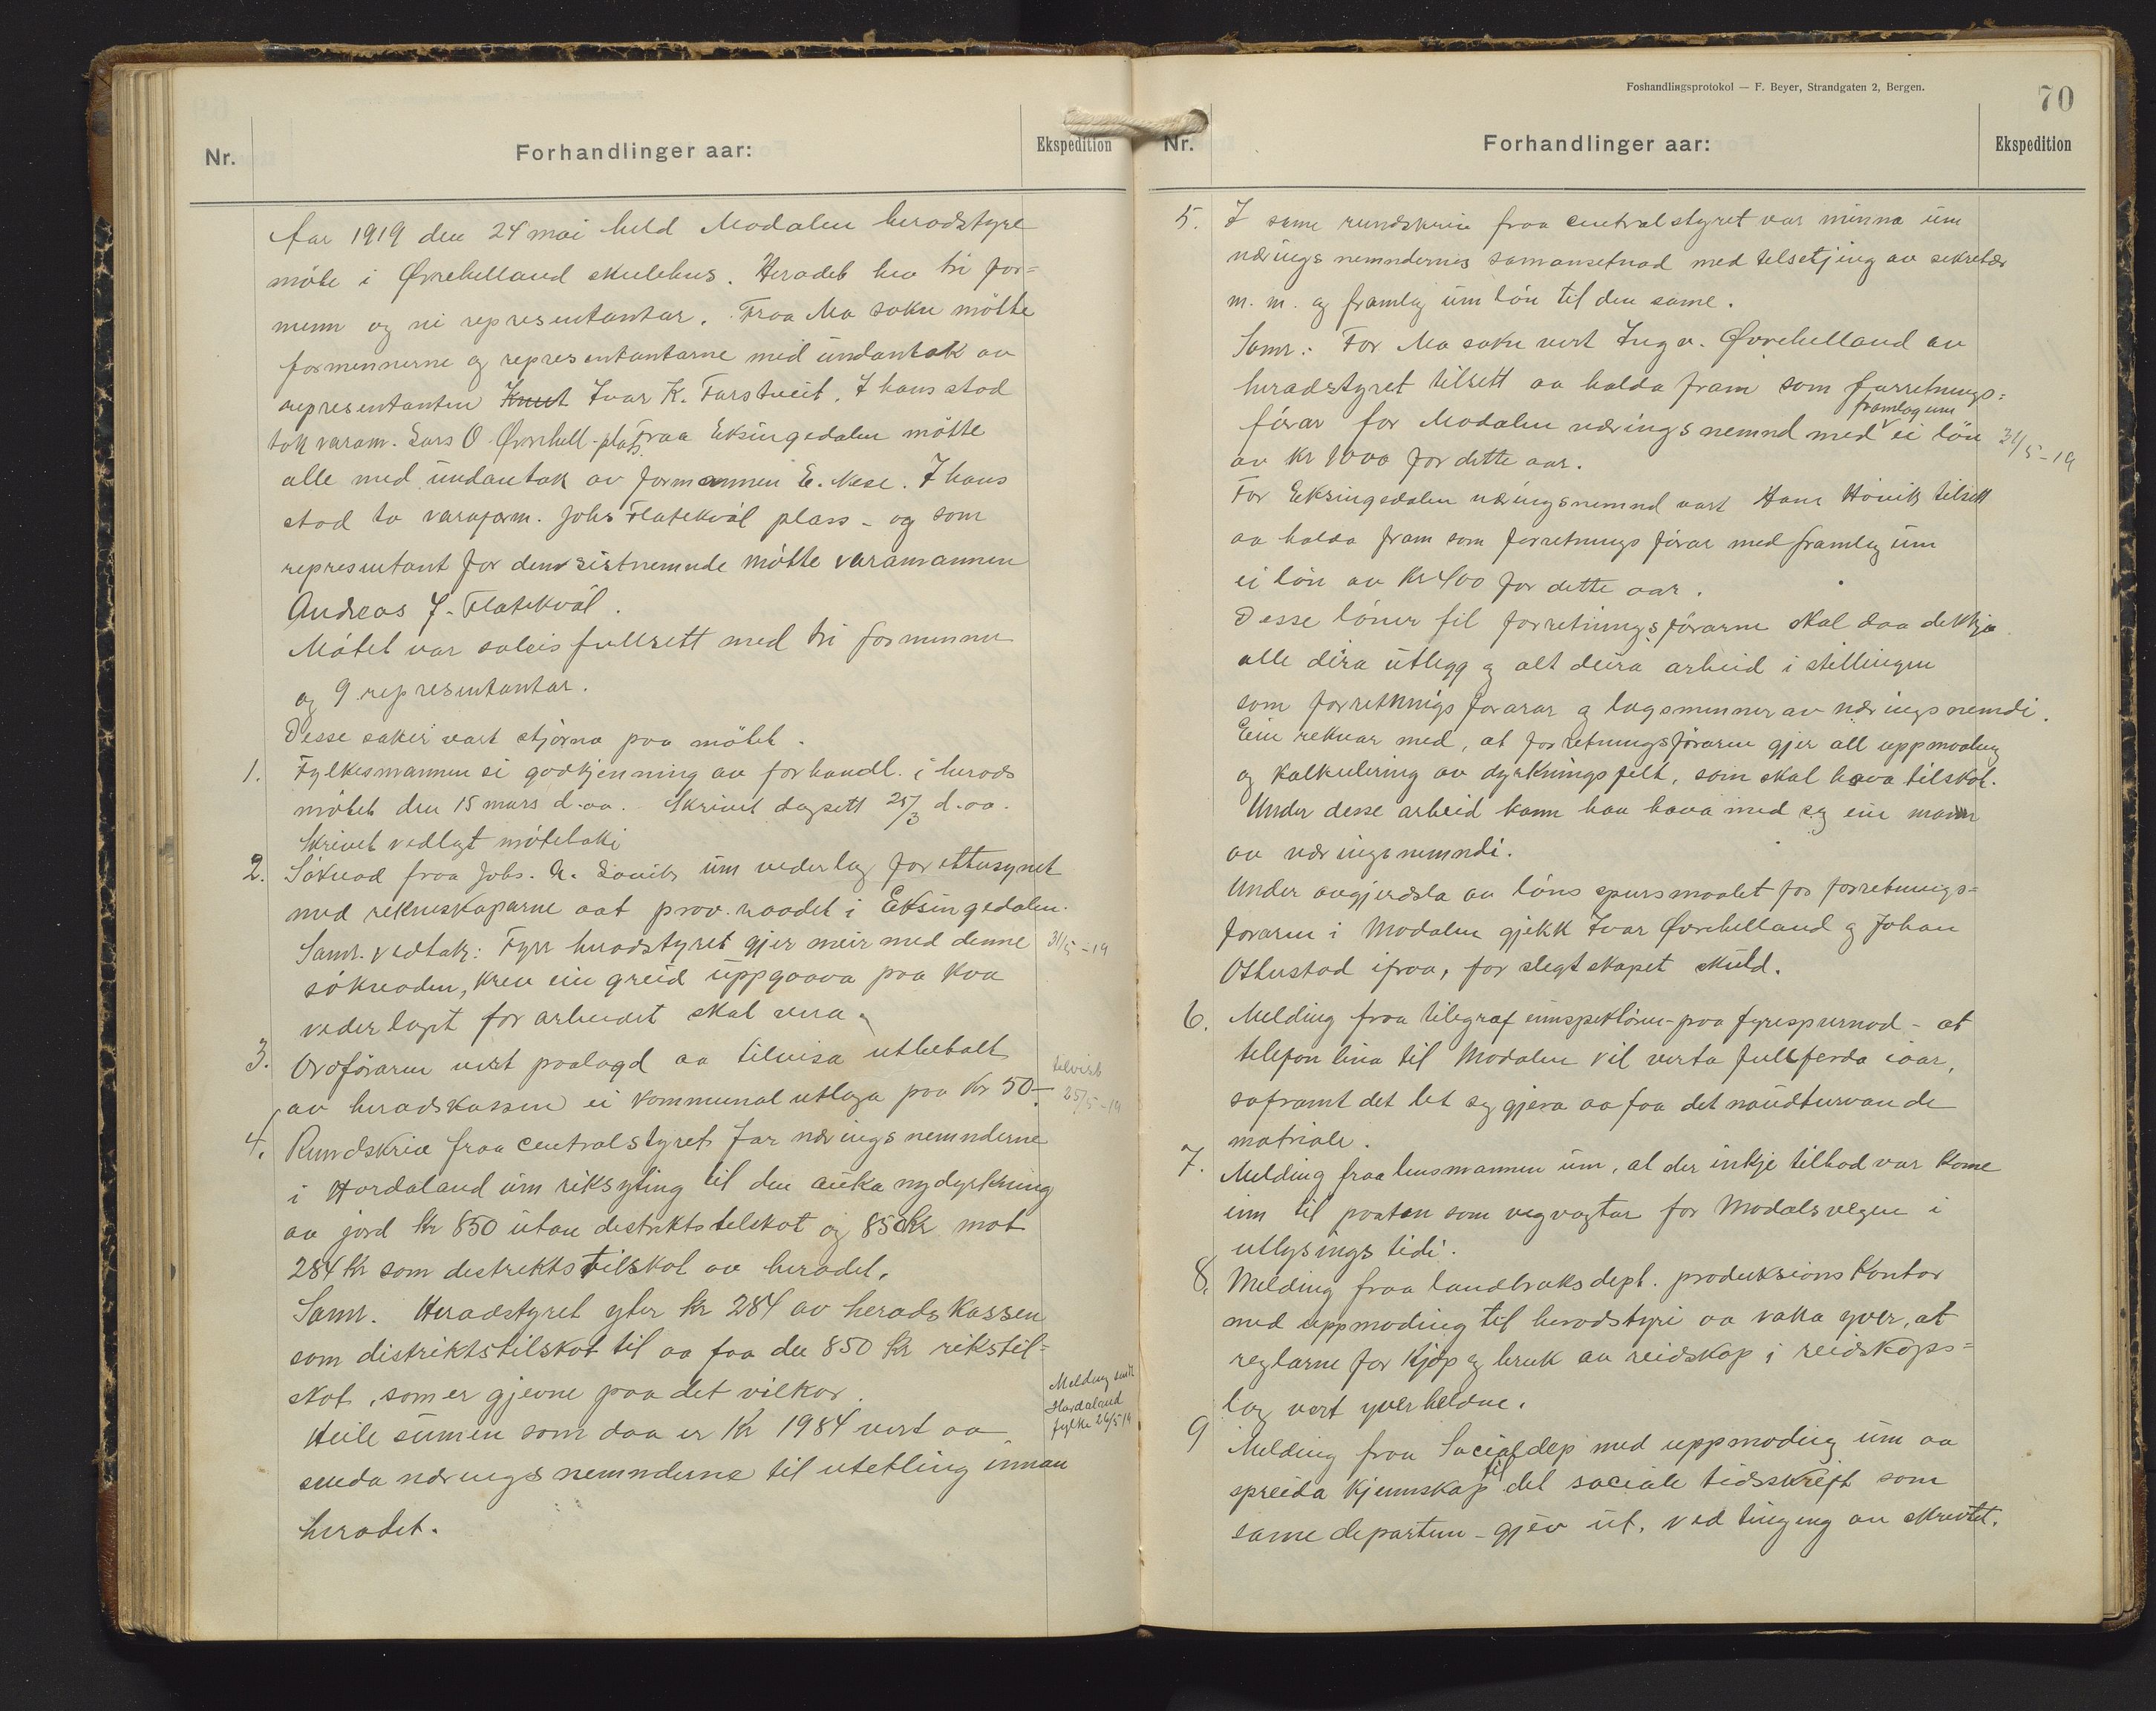 Nr.
Forhandlinger aar:
Ekspedition
Aar 1919 den 24 mai held Modalen heradstyre
möte i Øvrehelland skulehus. Heradet hev tri for=
menn og ni representantar. Fraa Mo sokn mötte
formennerne og representantarne med undantak av
representanten Knut Ivar K. Farstveit. I hans stad
tok varam. Lars O. Øvrehell. plass. Fraa Eksingedalen mötte
alle med undantak av formannen E. Nese. I hans
stad to varaform. Johs Flatekvål plass - og som
representant for den sistnemnde mötte varamannen
Andreas J. Flatekvål.
Mötet var soleis fullsett med tri formenner
og 9 representantar.
Desse saker vart stjorna paa mötet.
1. Fylkesmannen si godkjenning av forhandl. i herads
mötet den 15 mars d.aa. Skrivet dagsett 25/3 d.aa.
Skrivet vedlagt möteboki
2. Söknad fraa Johs. N. Lavik um vederlag for ettusynet
med rekneskaparne aat prov. raadet i Eksingedalen.
Samr. vedtak: Fyrr heradstyret gjer meir med denne 31/5-19
söknaden, krev ein greid uppgaava paa kva
vederlaget for arbeidet skal vera.
3. Ordföraren vert paalagd aa tilvisa utbetalt tilvist
av heradskassen ei kommunal utlaga paa Kr 50.- 25/5-19
4. Rundskriv fraa centralstyret for næringsnemnderne
i Hordaland um riksyting til den auka nydyrkning
av jord Kr 850 utan distriktstilskot og 850 Kr mot
284 Kr som destriktstilskot av heradet.
Samr. Heradstyret yter Kr 284 av heradskassen
som distriktstilskot til aa faa dei 850 Kr rikstil=
skot, som er gjevne paa det vilkor.
Melding sendt
Hordaland
fylke 26/5 19
Heile sumen som daa er Kr 1984 vert aa
senda næringsnemnderne til utetling innan
heradet.
Foshandlingsprotokol — F. Beyer, Strandgaten 2, Bergen.
70
Nr.
Forhandlinger aar:
Ekspedition
5. I same rundskriv fraa centralstyret var minna um
næringsnemndernes samansetnad med tilsetjing av sekretær
m. m. og framlag um lön til den same.
Samr.: For Mo sokn vert Ing v. Øvrehelland av
heradstyret tilsett aa halda fram som forretnings=
förar for Modalen næringsnemnd med framlag um ei lön 31/5-19
av Kr 1000 for dette aar.
For Eksingedalen næringsnemnd vart Hans Hövik tilsett
aa halda fram som forretningsförar med framlag um
ei lön av Kr 400 for dette aar.
Desse löner til forretningsförarne skal daa dekkja
alle deira utlegg og alt deira arbeid i stillingen
som forretningsförarar og lagsmenner av næringsnemdi.
Ein reknar med, at forretningsförarne gjer all uppmaaling
og kalkulering av dyrkningsfelt, som skal hava tilskot.
Under desse arbeid kann han hava med seg ein mann
av næringsnemndi.
Under avgjerdsla av lönsspursmaalet for forretnings=
föraren i Modalen gjekk Ivar Øvrehelland og Johan
Otterstad ifraa, for slegtskapet skuld.
6. Melding fraa telegraf innspektören - paa fyrespurnad - at
telefon lina til Modalen vil verta fullferda iaar,
soframt det let seg gjera aa faa det naudturvande
matriale.
7. Melding fraa lensmannen um, at der inkje tilbod var kome
inn til posten som vegvaktar for Modalsvegen i
utlysingstidi.
8. Melding fraa landbruksdept. produksions kontor
med uppmoding til heradstyri aa vaka yver, at
reglarne for kjöp og bruk av reidskap i reidskaps=
lag vert yverheldne.
9 Melding fraa Socialdep med uppmoding um aa
spreida kjennskap til det sociale tidsskrift som
same departem - gjev ut, ved tinging av skrivtet.